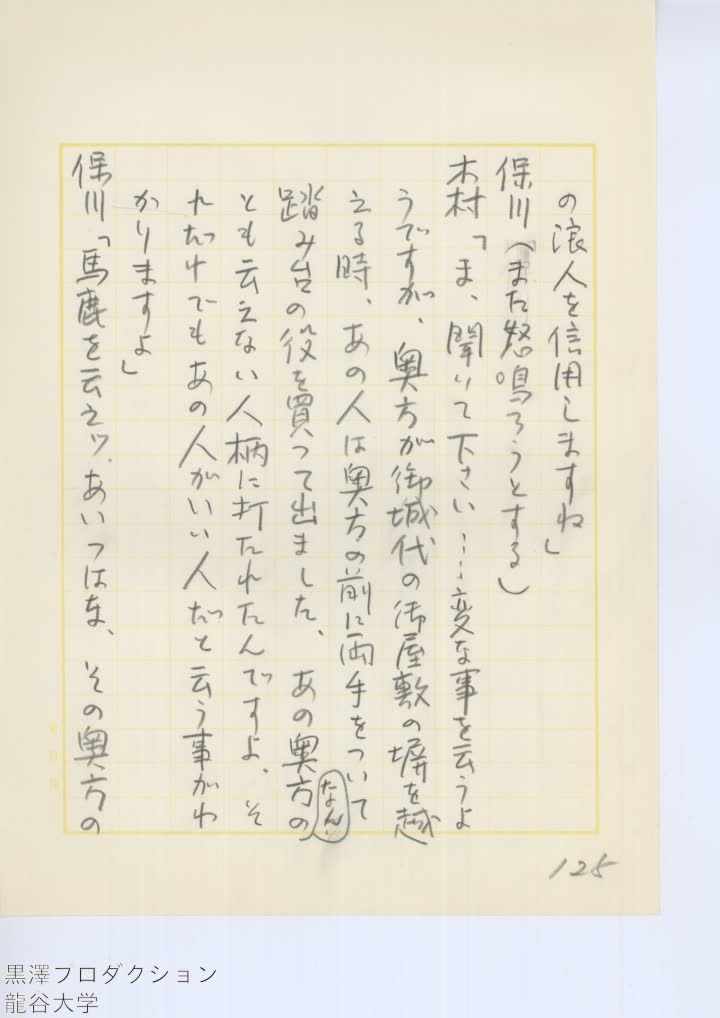 の浪人を信用しますね」
保川（また怒鳴ろうとする）
木村「ま、聞いて下さい……変な事を云うよ
うですが、奥方が御城代の御屋敷の塀を越
える時、あの人は奥方の前に両手をついて
踏み台の役を買って出ました、あの奥方の
なん
とも云えない人柄に打たれたんですよ、そ
れだけでもあの人がいい人だと云う事がわ
かりますよ」
保川「馬鹿を云えッ、あいつはな、その奥方の
125
黒澤プロダクション
龍谷大学